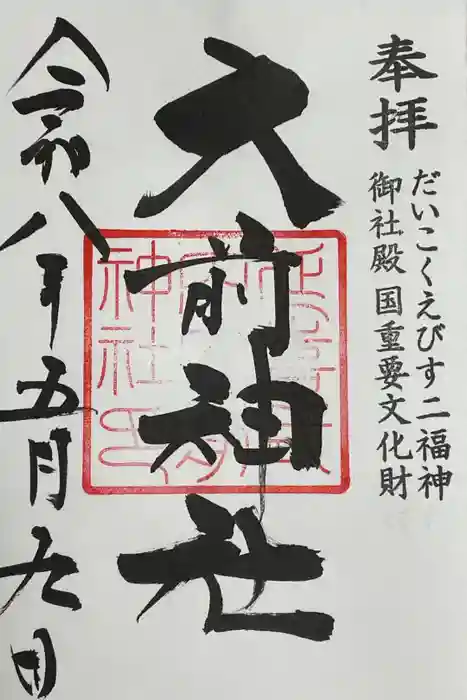 奉拝
だいこくえびす二福神
御社殿国重要文化財
大前神社
令和八年五月九日